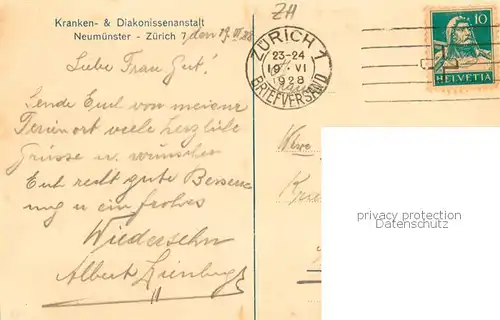 Kranken- & Diakonissenanstalt
Neumünster - Zürich 7, den 19. VI 28
Liebe Frau Gut!
Sende Euch von meiner
Ferienort viele herzliche
Grüsse u. wünsche
Euch recht gute Besser-
ung u ein frohes
Wiedersehn
Albert
ZH
ZÜRICH 1
23-24
19·VI
1928
BRIEFVERSAND
10
HELVETIA
privacy protection
Datenschutz